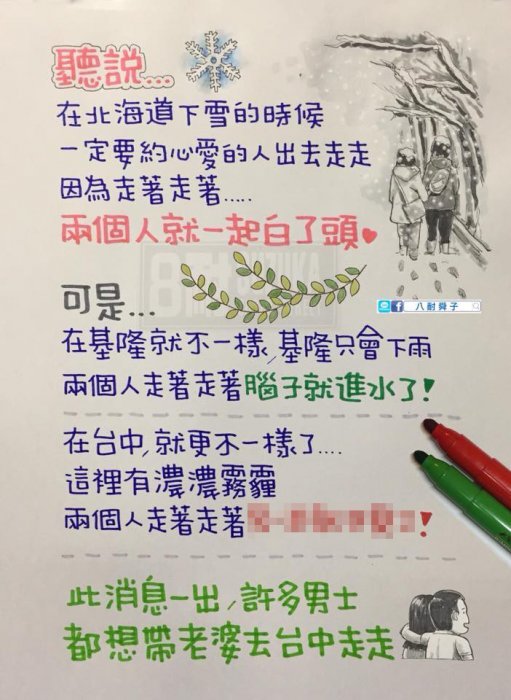 聽說....
在北海道下雪的時候
一定要約心愛的人出去走走
因為走著走著.....
兩個人就一起白了頭
八耐舜子
可是...
在基隆就不一樣,基隆只會下雨
兩個人走著走著腦子就進水了!
在台中,就更不一樣了....
這裡有濃濃霧霾
兩個人走著走著 !
此消息一出,許多男士
都想帶老婆去台中走走